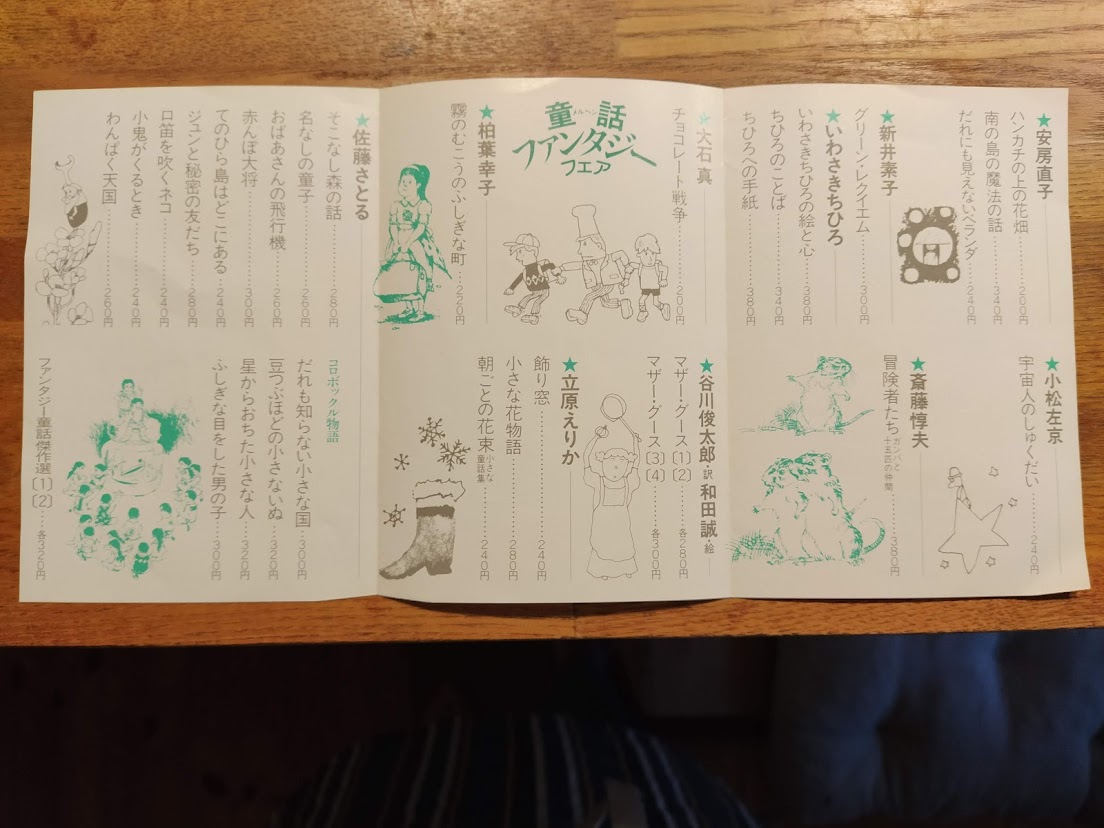 童話
メルヘン
ファンタジー
フェア
★安房直子
ハンカチの上の花畑…220円
南の島の魔法の話…340円
だれにも見えないベランダ…240円
★新井素子
グリーン・レクイエム…300円
★いわさきちひろ
いわさきちひろの絵と心…380円
ちひろのことば…340円
ちひろへの手紙…380円
★大石 真
チョコレート戦争…220円
★柏葉幸子
霧のむこうのふしぎな町…220円
★佐藤さとる
そこなし森の話…280円
名なしの童子…260円
おばあさんの飛行機…260円
赤んぼ大将…300円
てのひら島はどこにある…240円
ジュンと秘密の友だち…280円
口笛を吹くネコ…240円
小鬼がくるとき…240円
わんぱく天国…260円
★小松左京
宇宙人のしゅくだい…240円
★斎藤惇夫
冒険者たち ガンバと十五匹の仲間…380円
★谷川俊太郎・訳 和田 誠・絵
マザー・グース〔1〕〔2〕…各280円
マザー・グース〔3〕〔4〕…各300円
★立原えりか
飾り窓…240円
小さな花物語…280円
朝ごとの花束 小さな童話集…240円
コロボックル物語
だれも知らない小さな国…300円
豆つぶほどの小さないぬ…320円
星からおちた小さな人…320円
ふしぎな目をした男の子…300円
ファンタジー童話傑作選〔1〕〔2〕…各320円